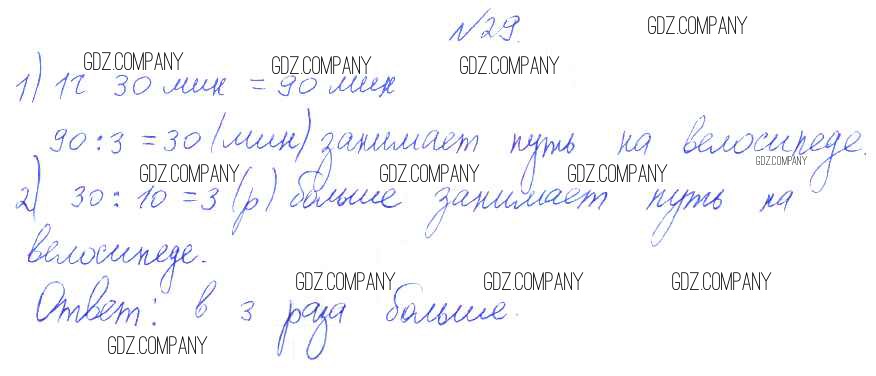 №29.
GDZ.COMPANY
GDZ.COMPANY GDZ.COMPANY GDZ.COMPANY
1) 1г 30 мин = 90 мин
90 : 3 = 30 (мин) занимает путь на велосипеде.
GDZ.COMPANY GDZ.COMPANY GDZ.COMPANY GDZ.COMPANY
2) 30 : 10 = 3 (р) больше занимает путь на
велосипеде.
GDZ.COMPANY GDZ.COMPANY GDZ.COMPANY
Ответ: в 3 раза больше.
GDZ.COMPANY